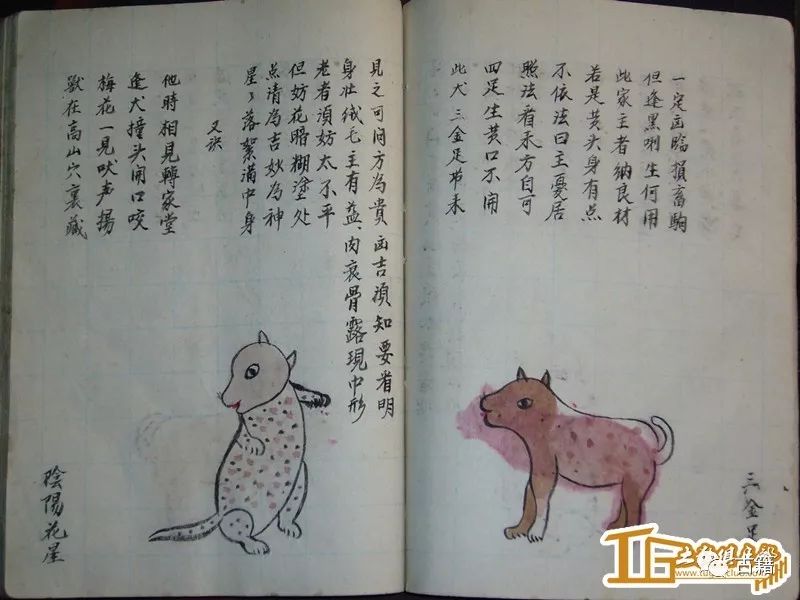 陰陽花星
獸在高山穴裏藏
梅花一見吠声揚
逢犬撞头開口咬
他時相見轉家堂
又訣
星々落絮满中身
点清為吉妙為神
但妨花暗糊塗处
老者湏妨太不平
身壮绒毛主有益、肉衰骨露現巾形
見之可问方為貴凶吉湏知要省明
此犬三金足带来
四足生黄口不開
照法看来方自可
不依法曰主憂居
若是黄头身有点
此家主者納良材
但逢黑唎生何用
一定凶臨損畜駒
三金足
古籍